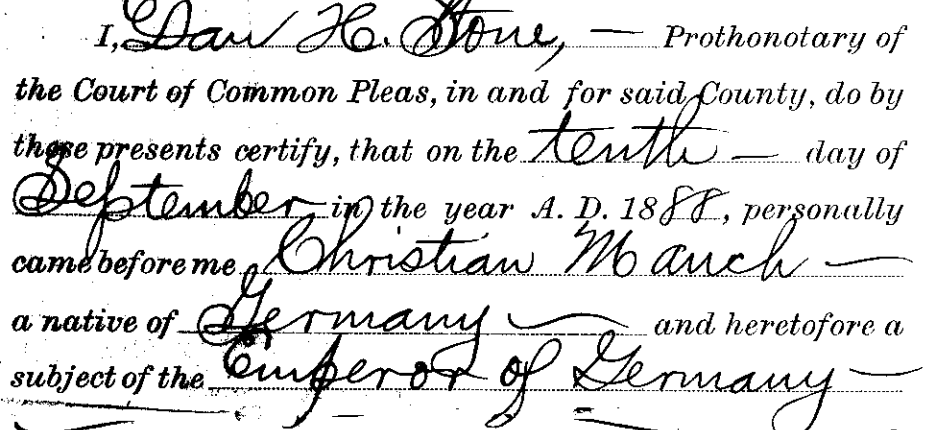 I, Dan H. Stone, — Prothonotary of
the Court of Common Pleas, in and for said County, do by
these presents certify, that on the tenth — day of
September, in the year A. D. 1888, personally
came before me Christian Mauch —
a native of Germany — and heretofore a
subject of the Emperor of Germany —